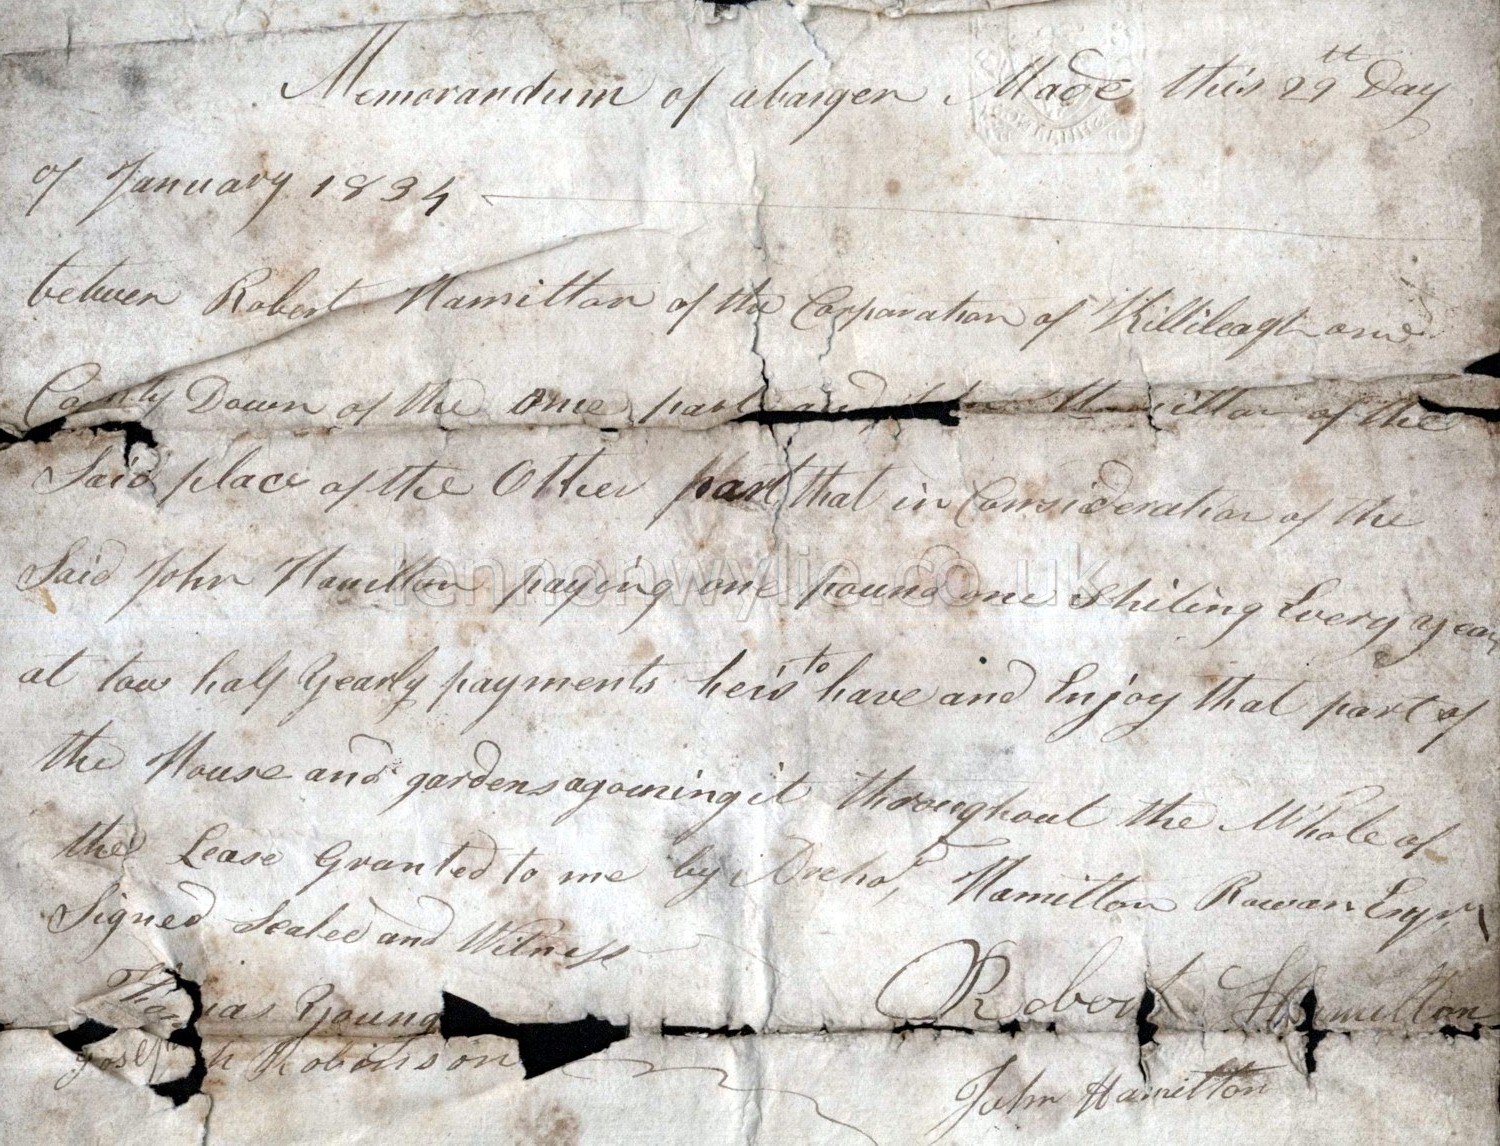 Memorandum of abargen Made this 29th Day
of January 1834
between Robert Hamilton of the Corporation of Killileagh and
County Down of the one part and John Hamilton of the
Said place of the Other part that in Consideration of the
Said John Hamilton paying one pound one Shiling Every year
at tow half Yearly payments heis to have and Enjoy that part of
the House and gardens agouining it throughout the Whole of
the Lease Granted to me by Archd. Hamilton Rowan Esqr
Signed Sealed and Witness
Robert Hamilton
Young
Joseph Robinson
John Hamilton
lennonwylie.co.uk